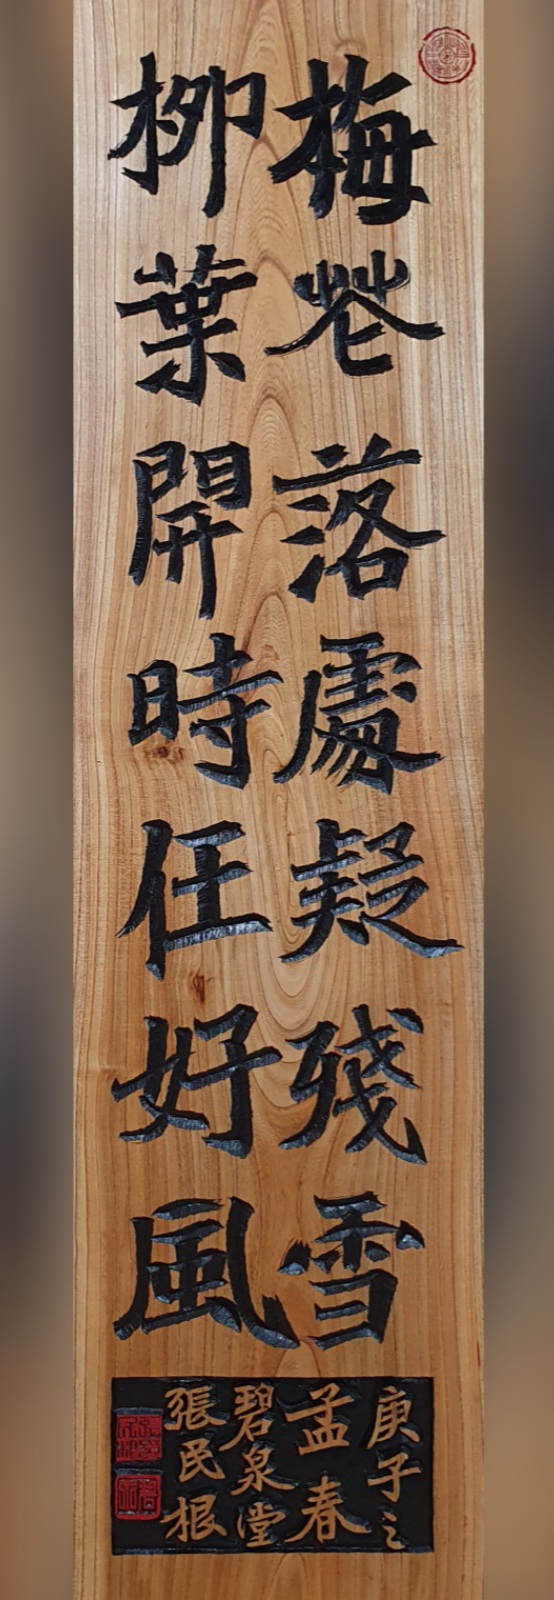 梅花落處疑殘雪
柳葉開時任好風
庚子之
孟春
碧泉堂
張民根